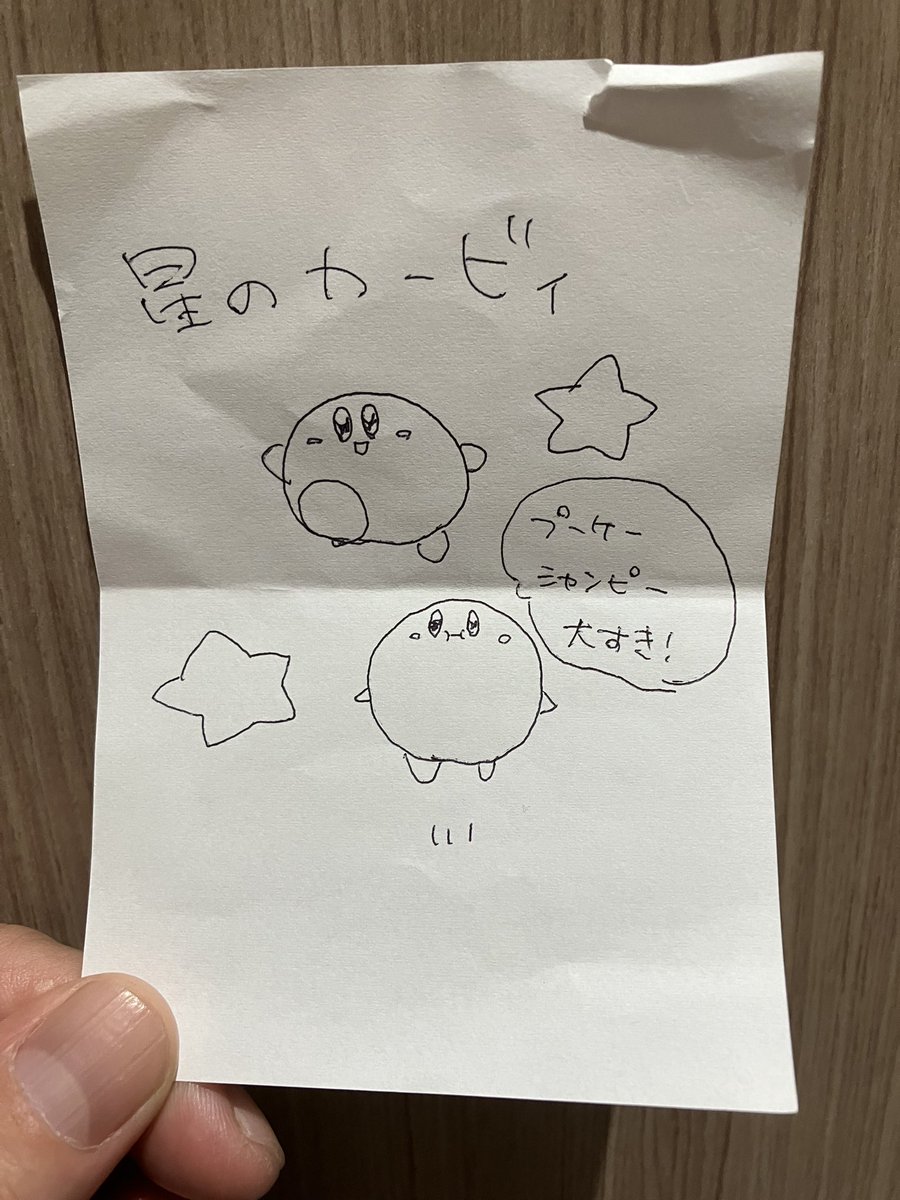 星のカービィ
プーケー
シャンピー
大すき!